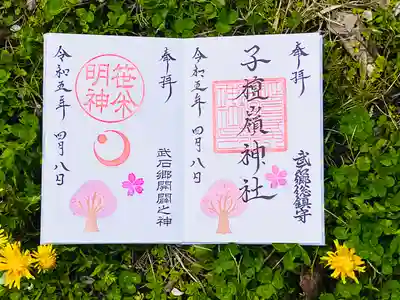 奉拝
武石総鎮守
子檀嶺神社
令和五年 四月八日
奉拝
武石郷開闢之神
笹焼明神
令和五年 四月八日